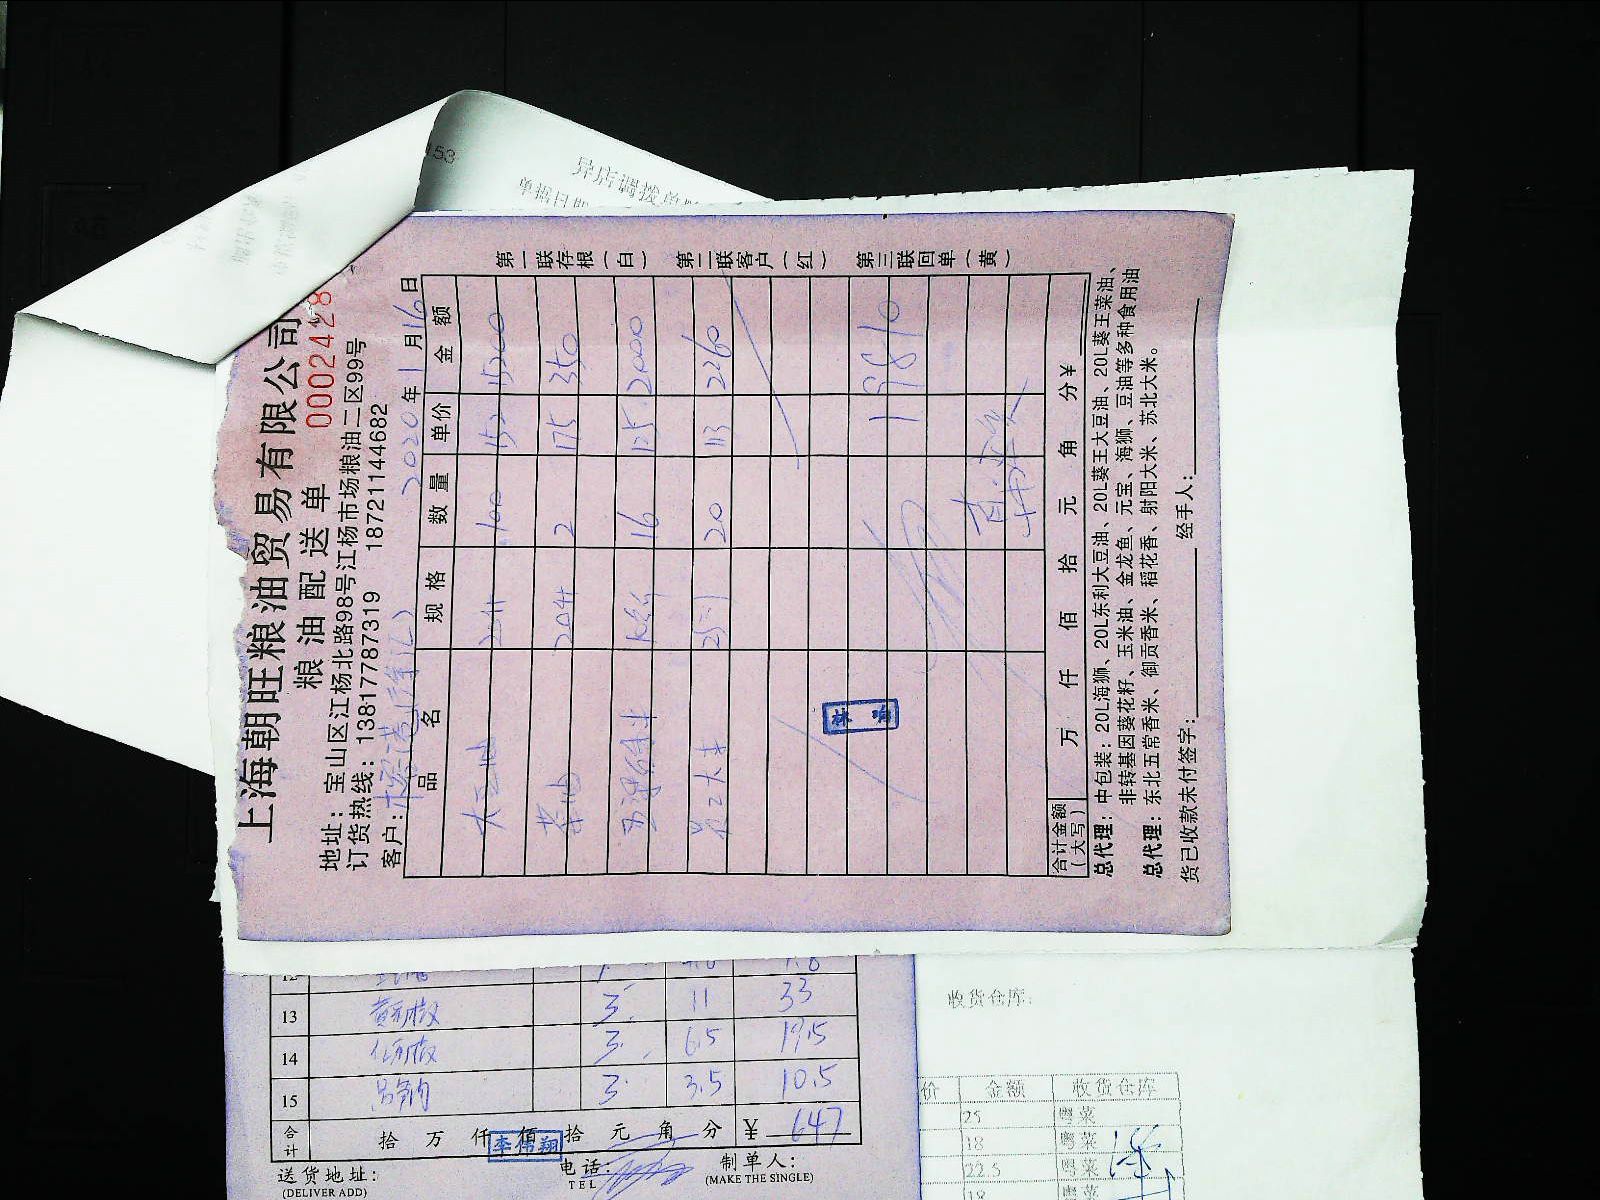 上海朝旺粮油贸易有限公司
粮油配送单 0002428
地址：宝山区江杨北路98号江杨市场粮油二区99号
订货热线：13817787319 18721144682
客户： 2020年1月16日
品名 规格 数量 单价 金额
大豆油 20升 100 152 15200
菜油 20升 2 175 350
16 125 2000
大米 25 20 113 2260
19810
合计金额（大写） 万 仟 佰 拾 元 角 分 ¥
总代理：中包装：20L海狮、20L东利大豆油、20L葵王大豆油、20L葵王菜油、
非转基因葵花籽、玉米油、金龙鱼、元宝、海狮、豆油等多种食用油
总代理：东北五常香米、御贡香米、稻花香、射阳大米、苏北大米。
货已收款未付签字： 经手人：
第一联存根（白） 第二联客户（红） 第三联回单（黄）
53
异店调拨单
单据日期
12
13 黄 椒 3 11 33
14 椒 3 6.5 19.5
15 3 3.5 10.5
合计 拾 万 仟 佰 拾 元 角 分 ¥ 647
李伟翔
送货地址： 电话： 制单人：
(DELIVER ADD) TEL (MAKE THE SINGLE)
收货仓库：
价 金额 收货仓库
25 粤菜
18 粤菜
22.5 粤菜
18 粤菜